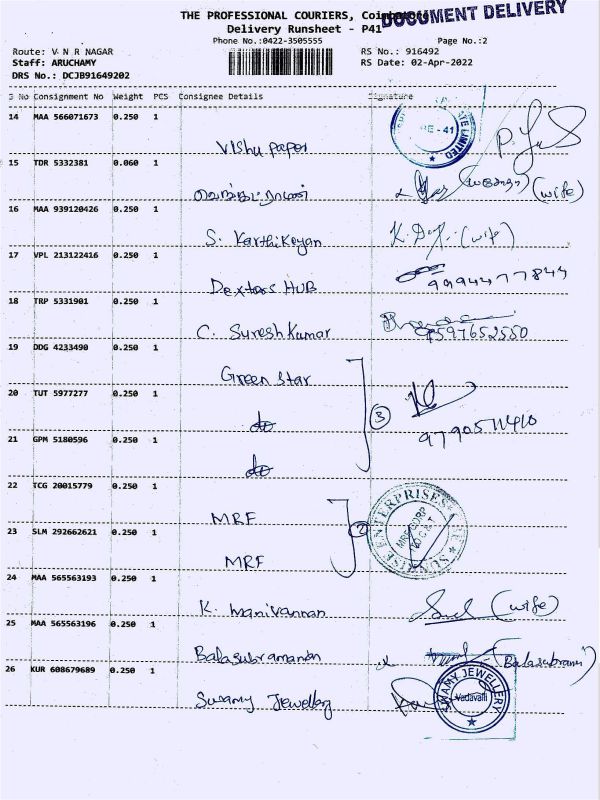 THE PROFESSIONAL COURIERS, Coimbatore
DOCUMENT DELIVERY
Delivery Runsheet - P41
Phone No.:0422-3505555
Page No.:2
Route: V N R NAGAR
RS No.: 916492
Staff: ARUCHAMY
RS Date: 02-Apr-2022
DRS No.: DCJB91649202
S No Consignment No Weight PCS Consignee Details Signature
14 MAA 566071673 0.250 1
Vishu paper
15 TDR 5332381 0.060 1
(wife)
16 MAA 939120426 0.250 1
S. Karthikeyan
(wife)
17 VPL 213122416 0.250 1
Dextors HUB
9994477844
18 TRP 5331901 0.250 1
C. Suresh Kumar
9597652550
19 DDG 4233490 0.250 1
Green Star
20 TUT 5977277 0.250 1
do
3
21 GPM 5180596 0.250 1
do
9790571410
22 TCG 20015779 0.250 1
MRF
23 SLM 292662621 0.250 1
MRF
2
SUNRISE ENTERPRISES
24 MAA 565563193 0.250 1
K. Manivannan
(wife)
25 MAA 565563196 0.250 1
Balasubramanian
26 KUR 608679689 0.250 1
Swamy Jewellery
SWAMY JEWELLERY
Vadavalli